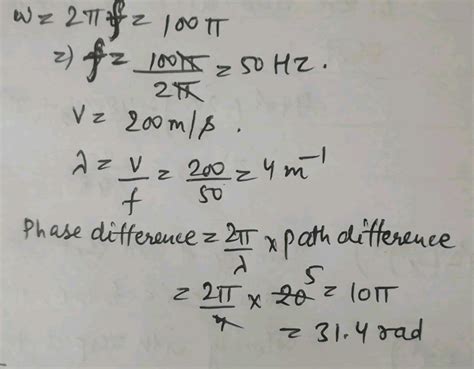 ω = 2πf = 100π
⇒ f = 100π/2π = 50 HZ.
V = 200 m/s.
λ = V/f = 200/50 = 4 m⁻¹
Phase difference = 2π/λ × path difference
= 2π/4 × 20 5 = 10π
= 31.4 rad